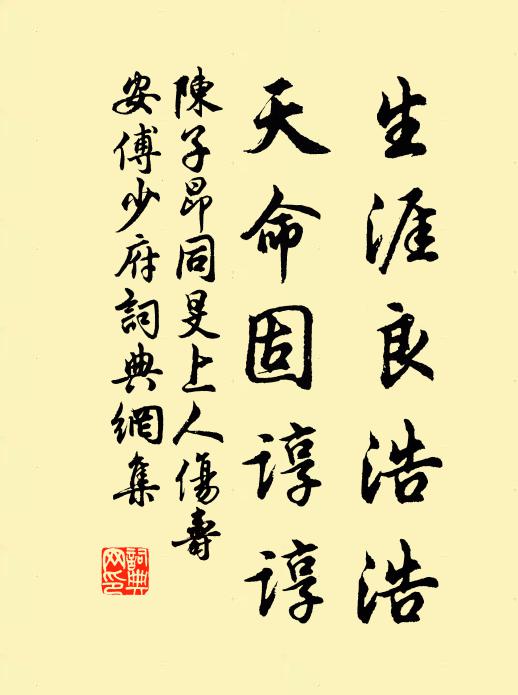 生涯良浩浩
天命固諄諄
陳子昂同旻上人傷壽
安傅少府詞典網集
詞典
网印